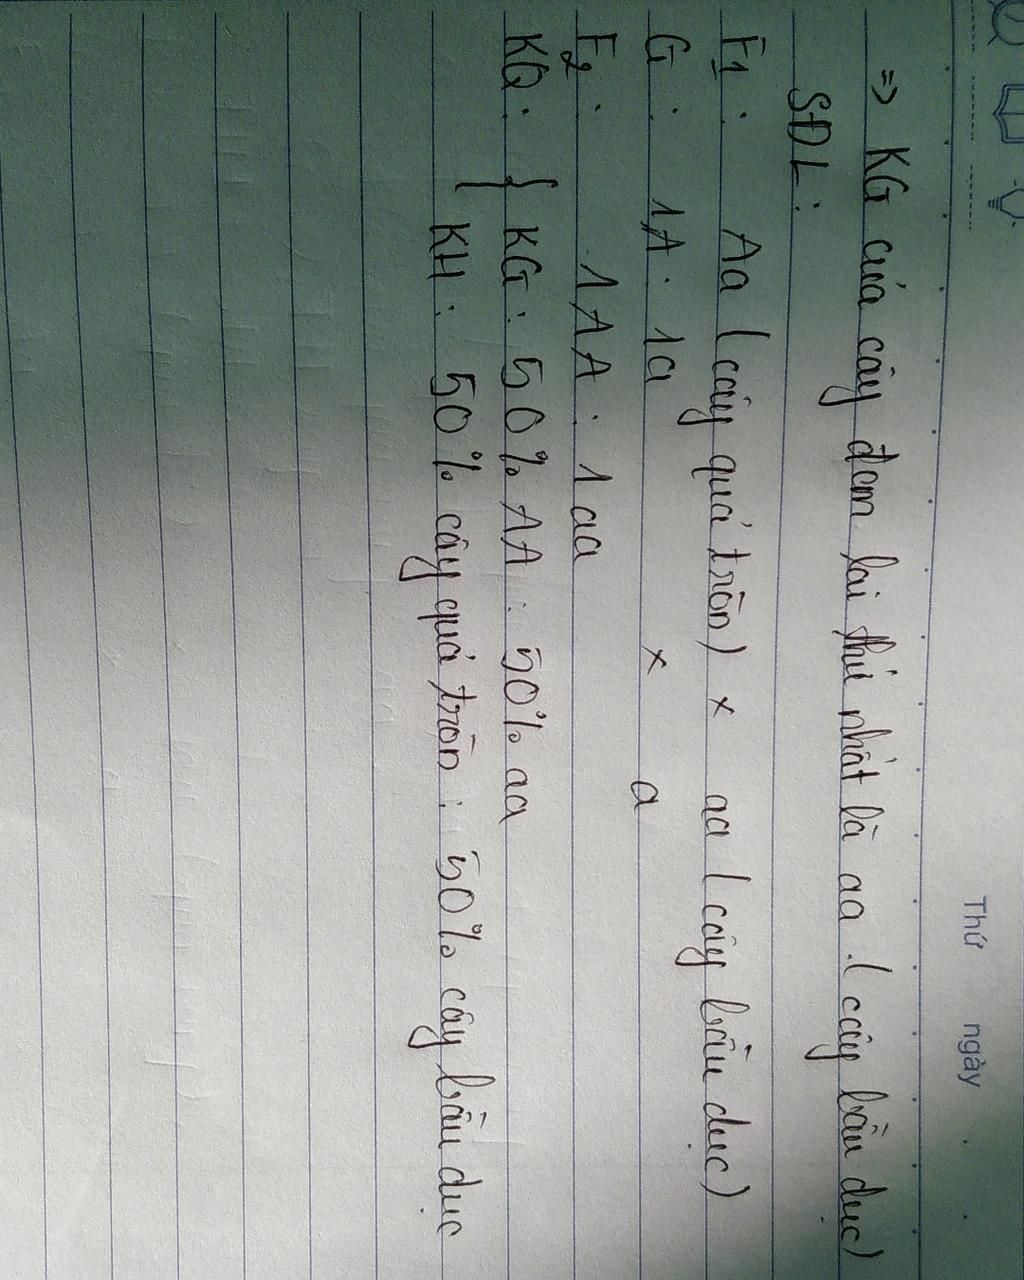 Thứ ngày
=> KG của cây đem lai thứ nhất là aa. (cây bầu dục)
SĐL:
F1: Aa (cây quả tròn) x aa (cây bầu dục)
G: 1A: 1a x a
F2: 1AA: 1aa
KQ: { KG: 50% AA: 50% aa
KH: 50% cây quả tròn: 50% cây bầu dục